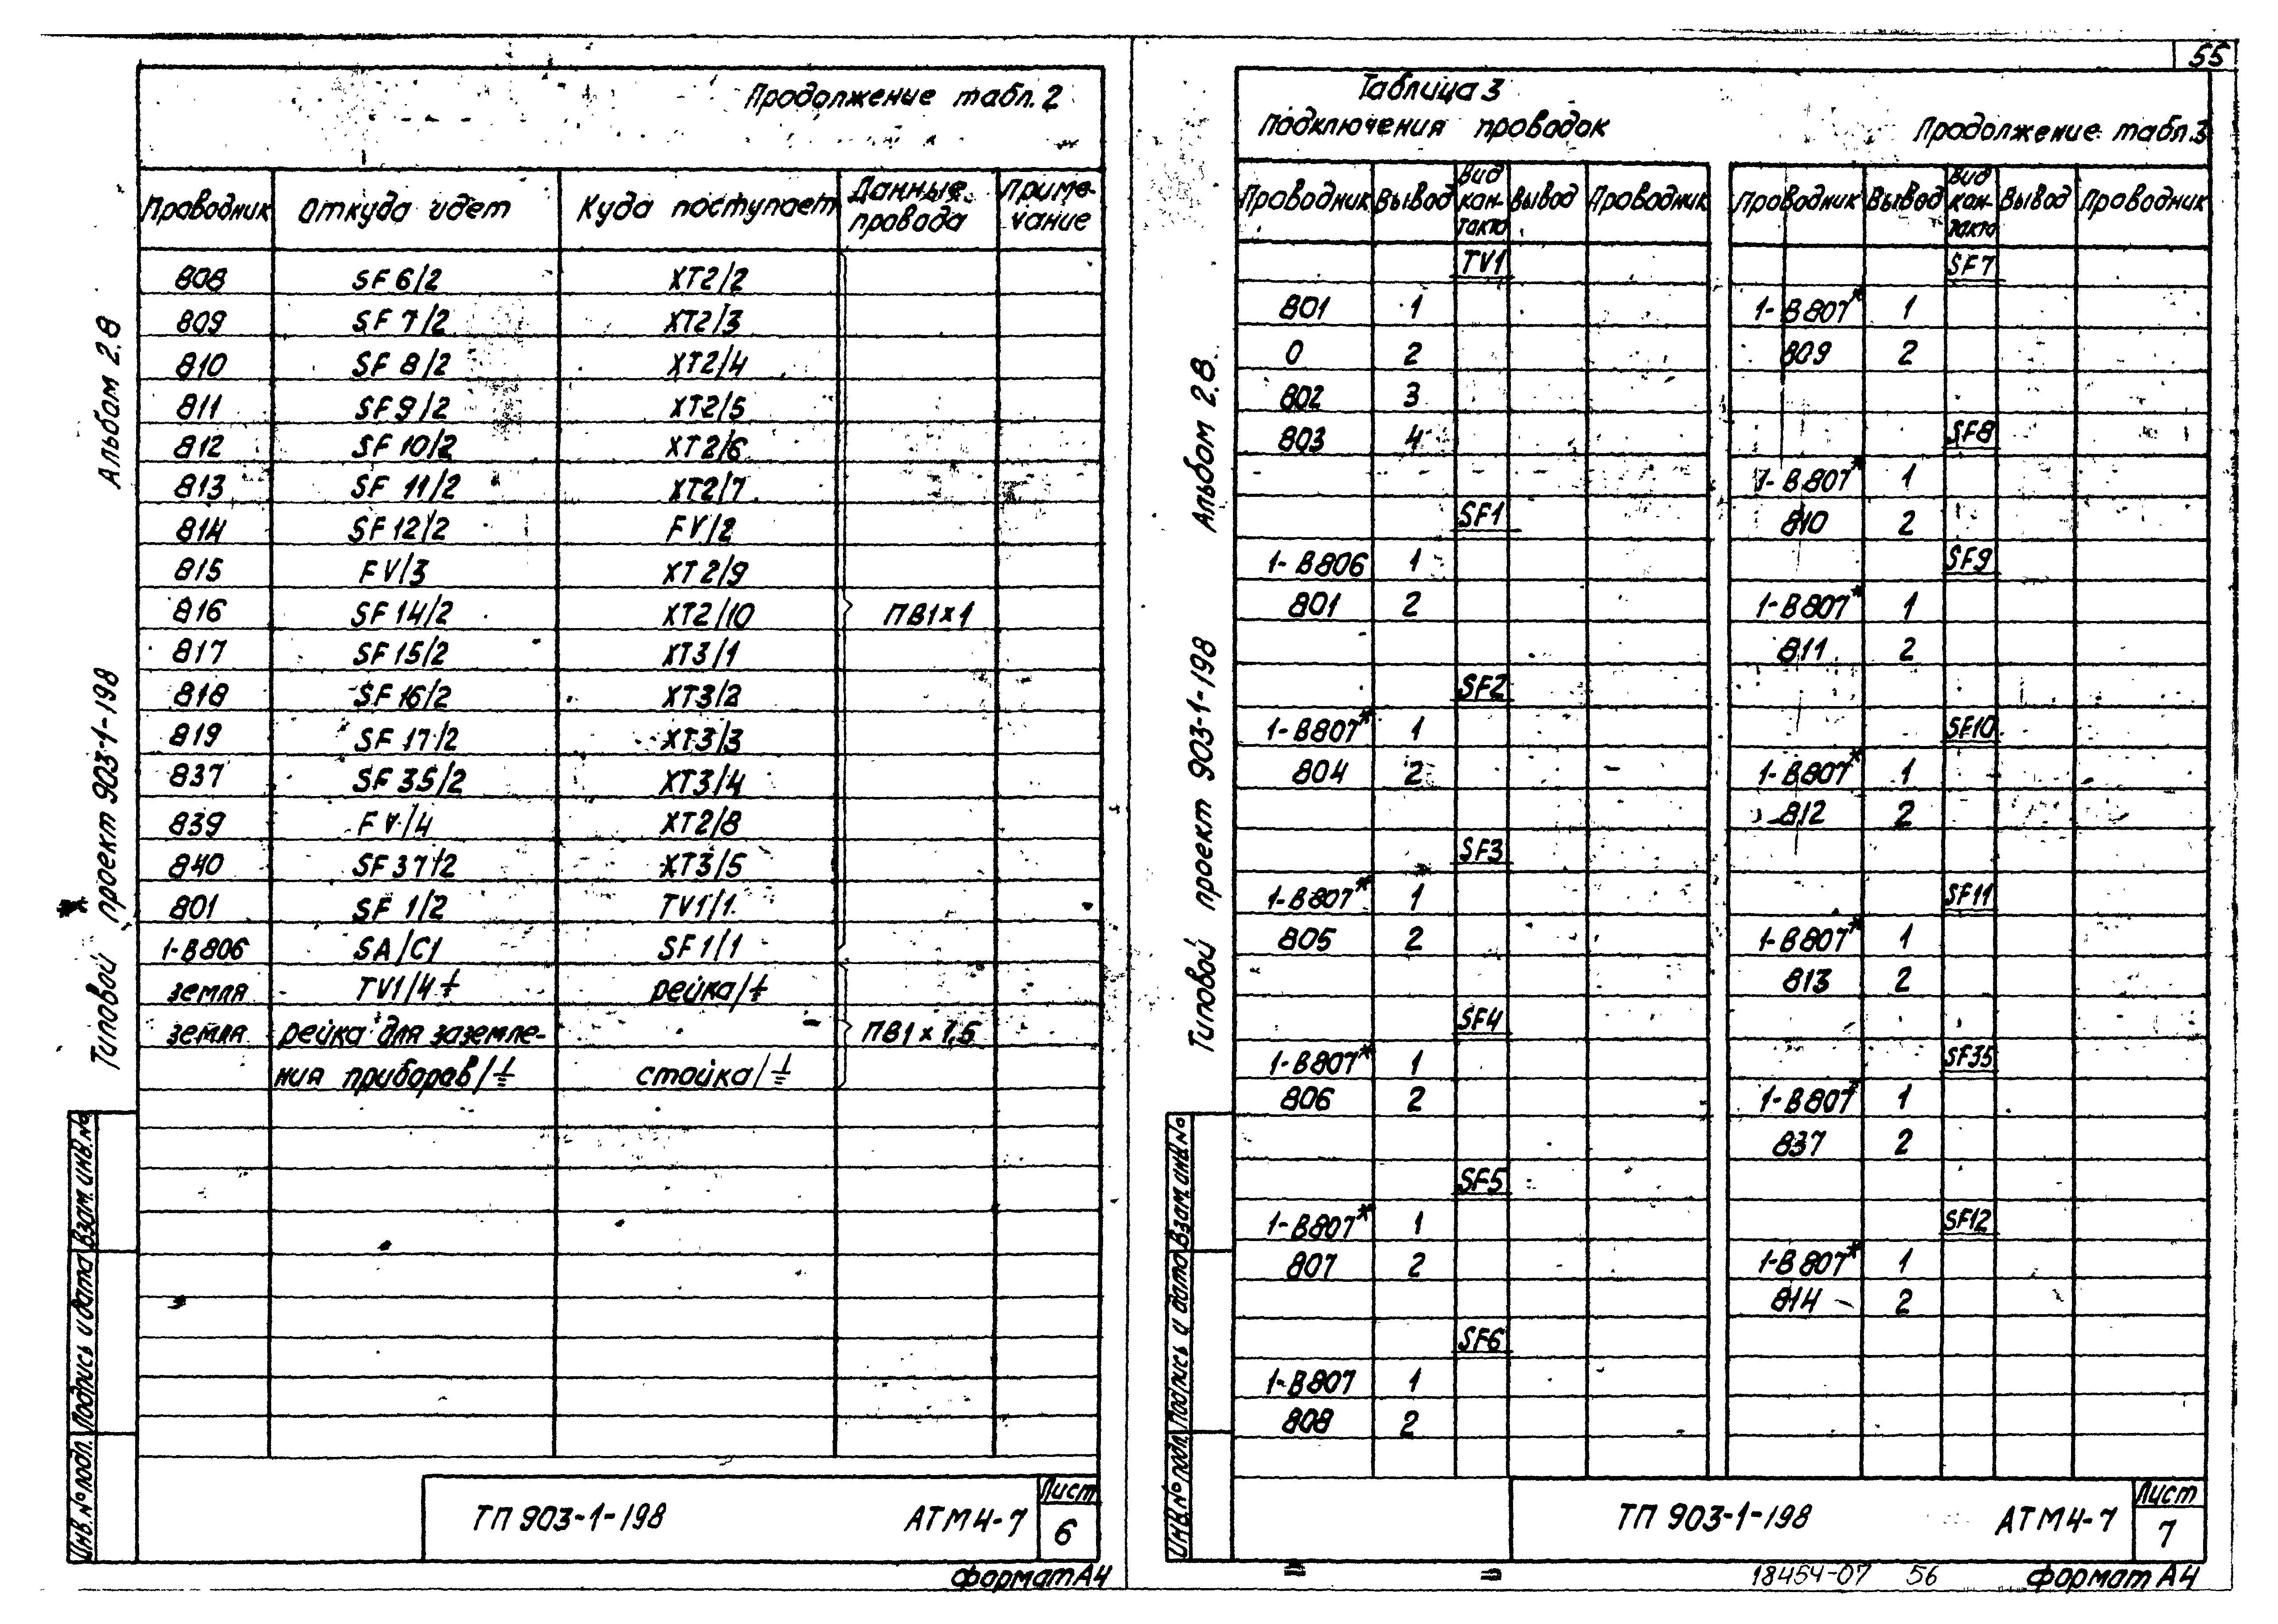 Продолжение табл. 2
Проводник Откуда идет Куда поступает Данные провода Примечание
808 SF 6/2 XT2/2
809 SF 7/2 XT2/3
810 SF 8/2 XT2/4
811 SF 9/2 XT2/5
812 SF 10/2 XT2/6
813 SF 11/2 XT2/7
814 SF 12/2 FV/2
815 FV/3 XT2/9
816 SF 14/2 XT2/10 ПВ1×1
817 SF 15/2 XT3/1
818 SF 16/2 XT3/2
819 SF 17/2 XT3/3
837 SF 35/2 XT3/4
839 FV/4 XT2/8
840 SF 37/2 XT3/5
801 SF 1/2 TV1/1
1-В806 SA/C1 SF1/1
земля TV1/4 ⏚ рейка/⏚
земля рейка для заземле- ПВ1×1,5
ния приборов/⏚ стойка/⏚
Альбом 2.8
Типовой проект 903-1-198
Инв.№ подл. Подпись и дата Взам.инв.№
ТП 903-1-198 АТМ4-7
Лист
6
Формат А4
55
Таблица 3
подключения проводок
Проводник Вывод Вид контакта Вывод Проводник
TV1
801 1
0 2
802 3
803 4
SF1
1-В806 1
801 2
SF2
1-В807* 1
804 2
SF3
1-В807* 1
805 2
SF4
1-В807* 1
806 2
SF5
1-В807* 1
807 2
SF6
1-В807 1
808 2
Продолжение табл.3
Проводник Вывод Вид контакта Вывод Проводник
SF7
1-В807* 1
809 2
SF8
1-В807* 1
810 2
SF9
1-В807* 1
811 2
SF10
1-В807* 1
812 2
SF11
1-В807* 1
813 2
SF35
1-В807* 1
837 2
SF12
1-В807* 1
814 2
Альбом 2.8
Типовой проект 903-1-198
Инв.№ подл. Подпись и дата Взам.инв.№
ТП 903-1-198 АТМ4-7
Лист
7
18454-07 56
Формат А4